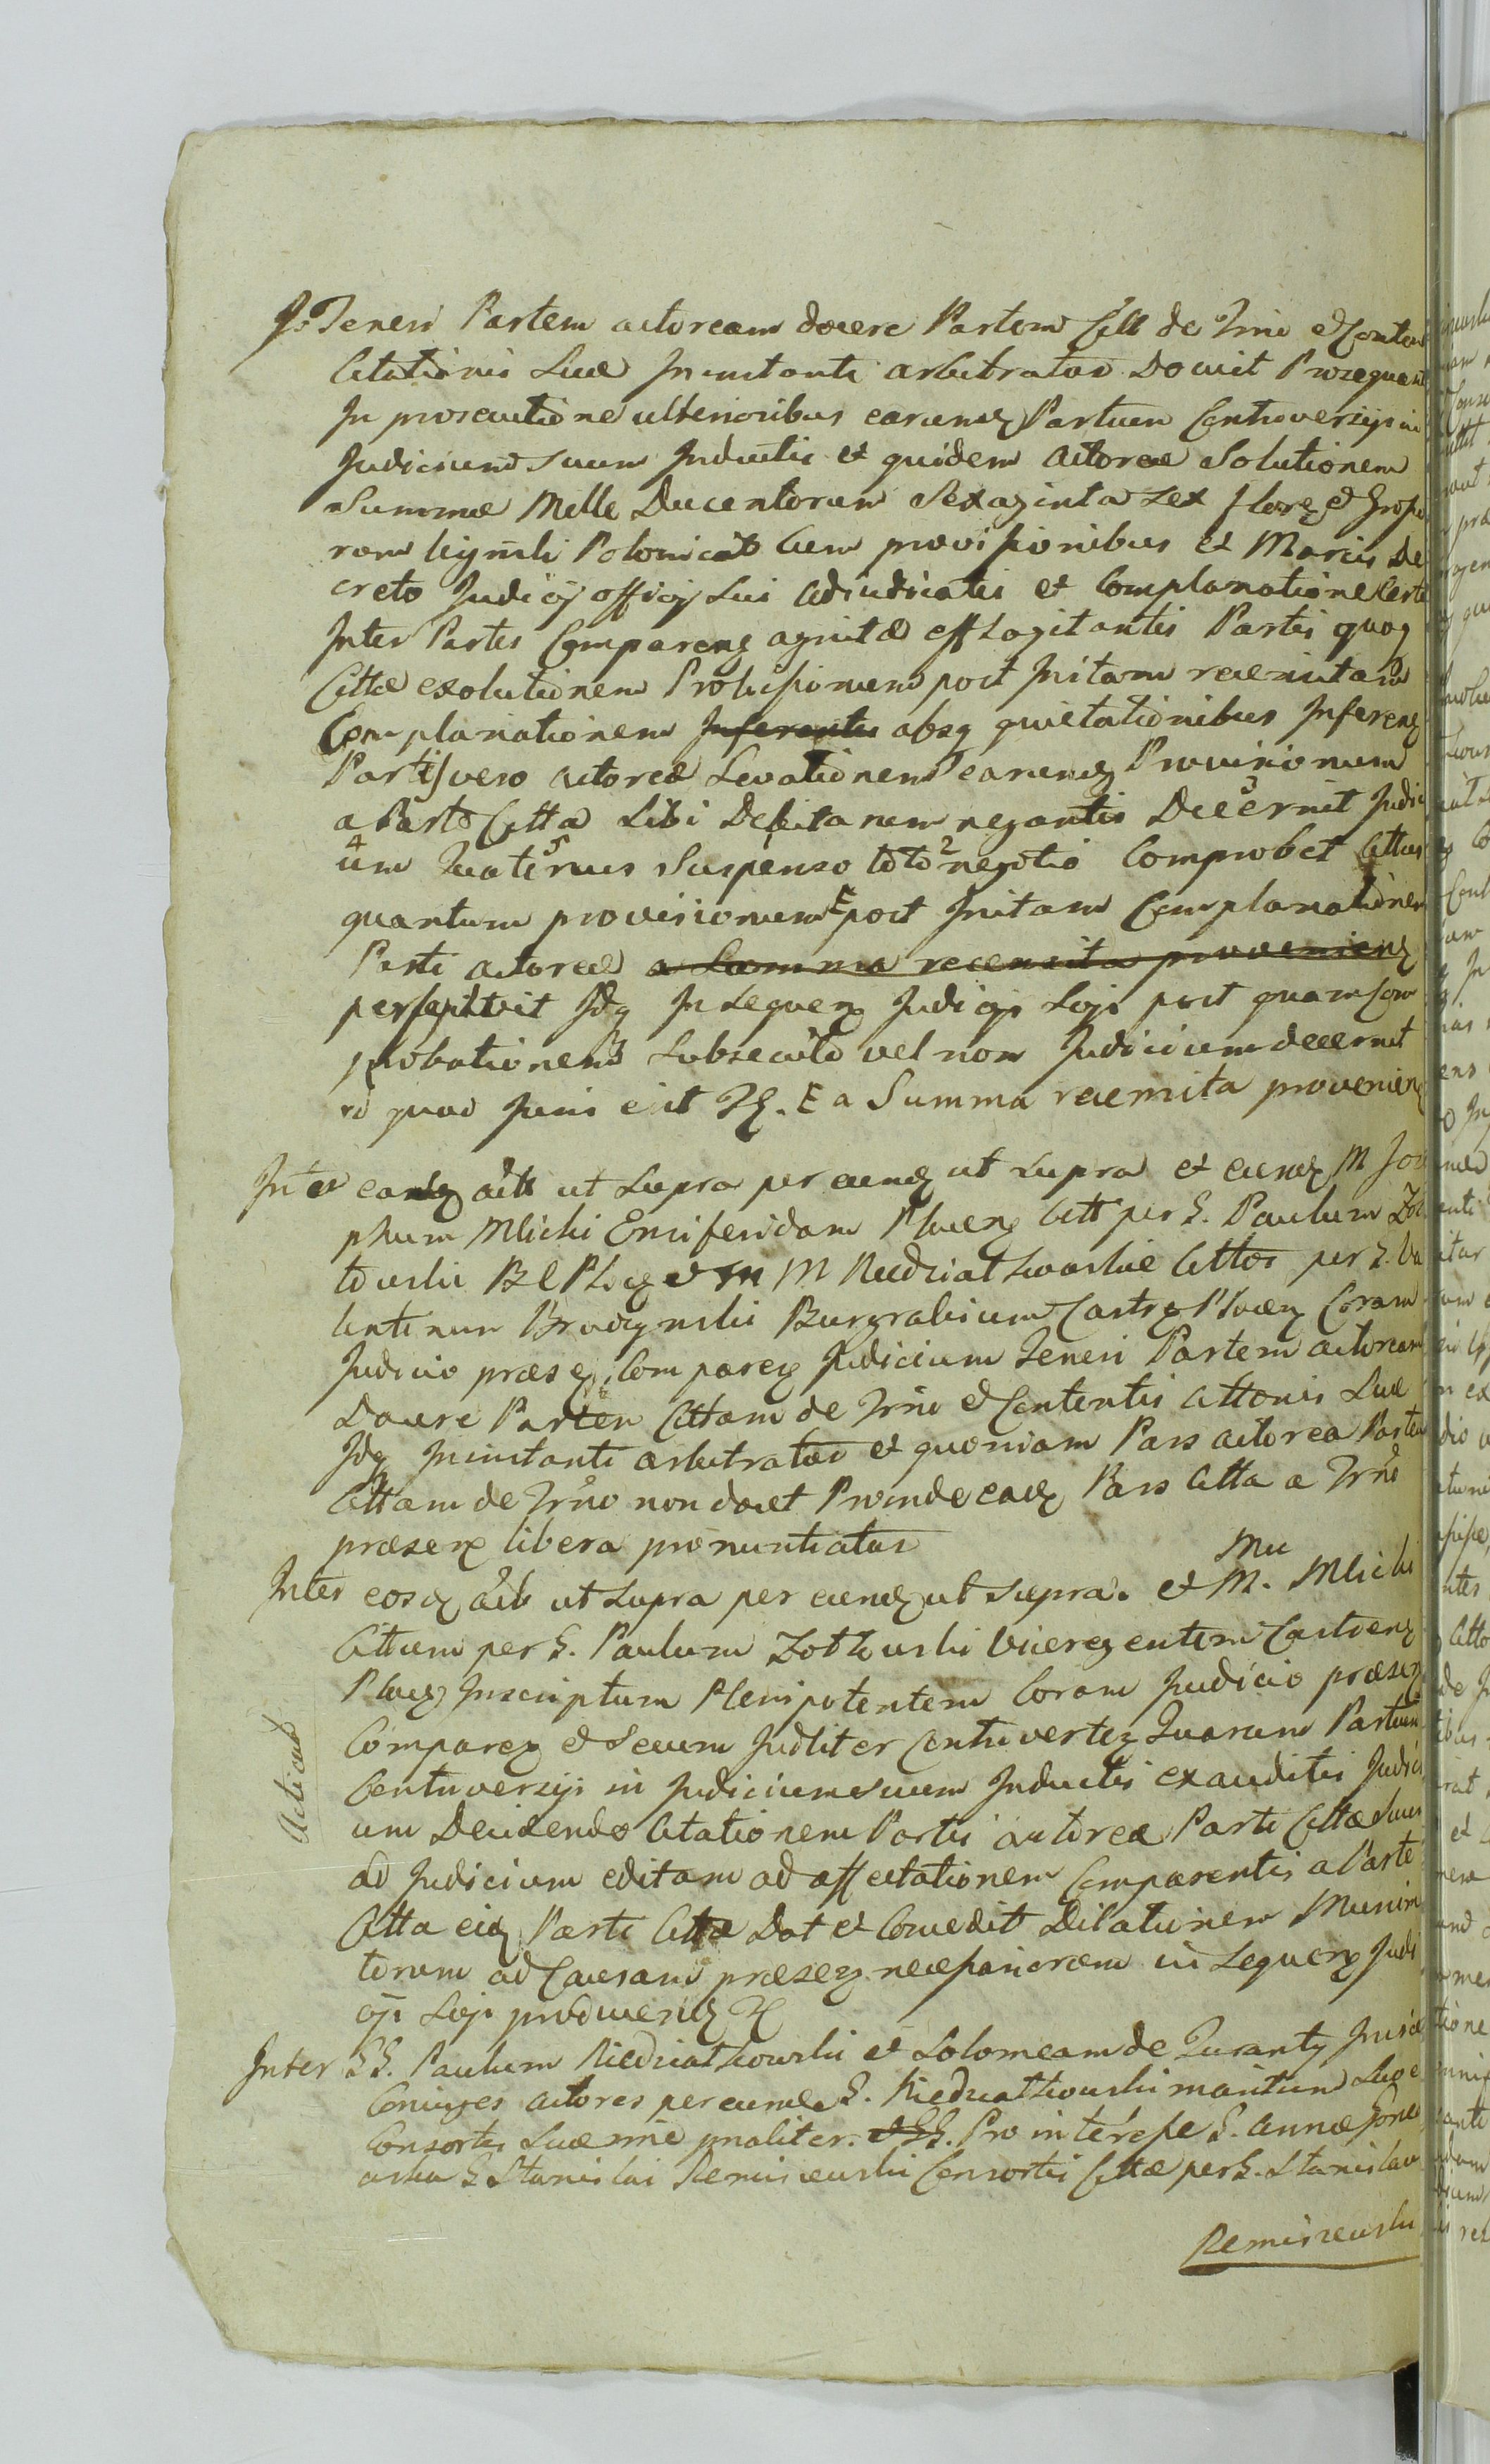 Teneri Partem actoream docere Partem Citt de Trno et Conten
Citationis Suæ In instanti arbitratur Docuit Prosequent
In prosecutione ulterioribus earumq Partium Controversijs in
Judicium suum Inductis et quidem actoreæ Solutionem
Summæ Mille Ducentorum Sexaginta sex florz et Grosso
rum Polonical Cum provisionibus et Marcis De
creto Judicij officij Sui adiudicatis et Complanatione Certa
Inter Partes Comparenz agnitæ efflagitantis Partis quoq
Cittæ exolutionem Provisionum post Initam recensitam
Complanationem Inferentis absq quietationibus Inferenz
Partis vero actoreæ Levationem earumq Provisionum
a Parte Citta Sibi Debitarum negantis Decernit Judici
um Quatenus Suspenso toto negotio Comprobet Cittus
quantum provisionum post Initam Complanationem
Parti actoreæ a Summa recensita provenienz
persolvit Idq In Sequenz Judicijs Sijs post quam Com
probationem Subsecuto vel non Judicium decernet
id quod Juris erit a Summa recensita provenienz
Inter eandq actt ut Supra per eumq ut Supra et eumq M Jos
phum Mlicki Ensiferidam Plocenz Citt per G. Paulum Zot
towski et M M Niedziałkowskie Cittos per G. Va
lentinum Burgrabium Castrz Plocenz Coram
Judicio præsez Comparez Judicium Teneri Partem actoream
Docere Partem Cittam de Trno et Contentis Cittonis Suæ
Idq In instanti arbitratur et quoniam Pars actorea Partem
Cittam de Trno non docet Proinde eadq Pars Citta a Trno
præsenz libera pronuntiatur
Mu
Inter eosq actt ut Supra per eumq ut supra. et M. Mlicki
Cittum per G. Paulum Zottowski Viceregentem Castrenz
Plocenz Inscriptum Plenipotentem Coram Judicio præsez
Comparez et Secum Judliter Controvertez Quarum Partium
Acticat
Controversijs in Judicium suum Inductis exauditis Judici
um Decidendo Citationem Partis actoreæ Parti Cittæ Suum
ad Judicium editam ad affectationem Comparentis a Parte
Citta eiq Parti Cittæ Dat et Concedit Dilationem Munim
torum ad Causam præsez necessariorum in Sequenz Judi
cijs Sijs producendz
Inter GG. Paulum Niedziałkowski et Solomeam de Juratz
Coniuges actores per eumd G. Niedziałkowski maritum Suo e
Consortis Suæ nne pnaliter. et GG. Pro interesse G. Annæ
G Stanislai Remiszewski Consortis Cittæ per G. Stanislaum
Remiszewski